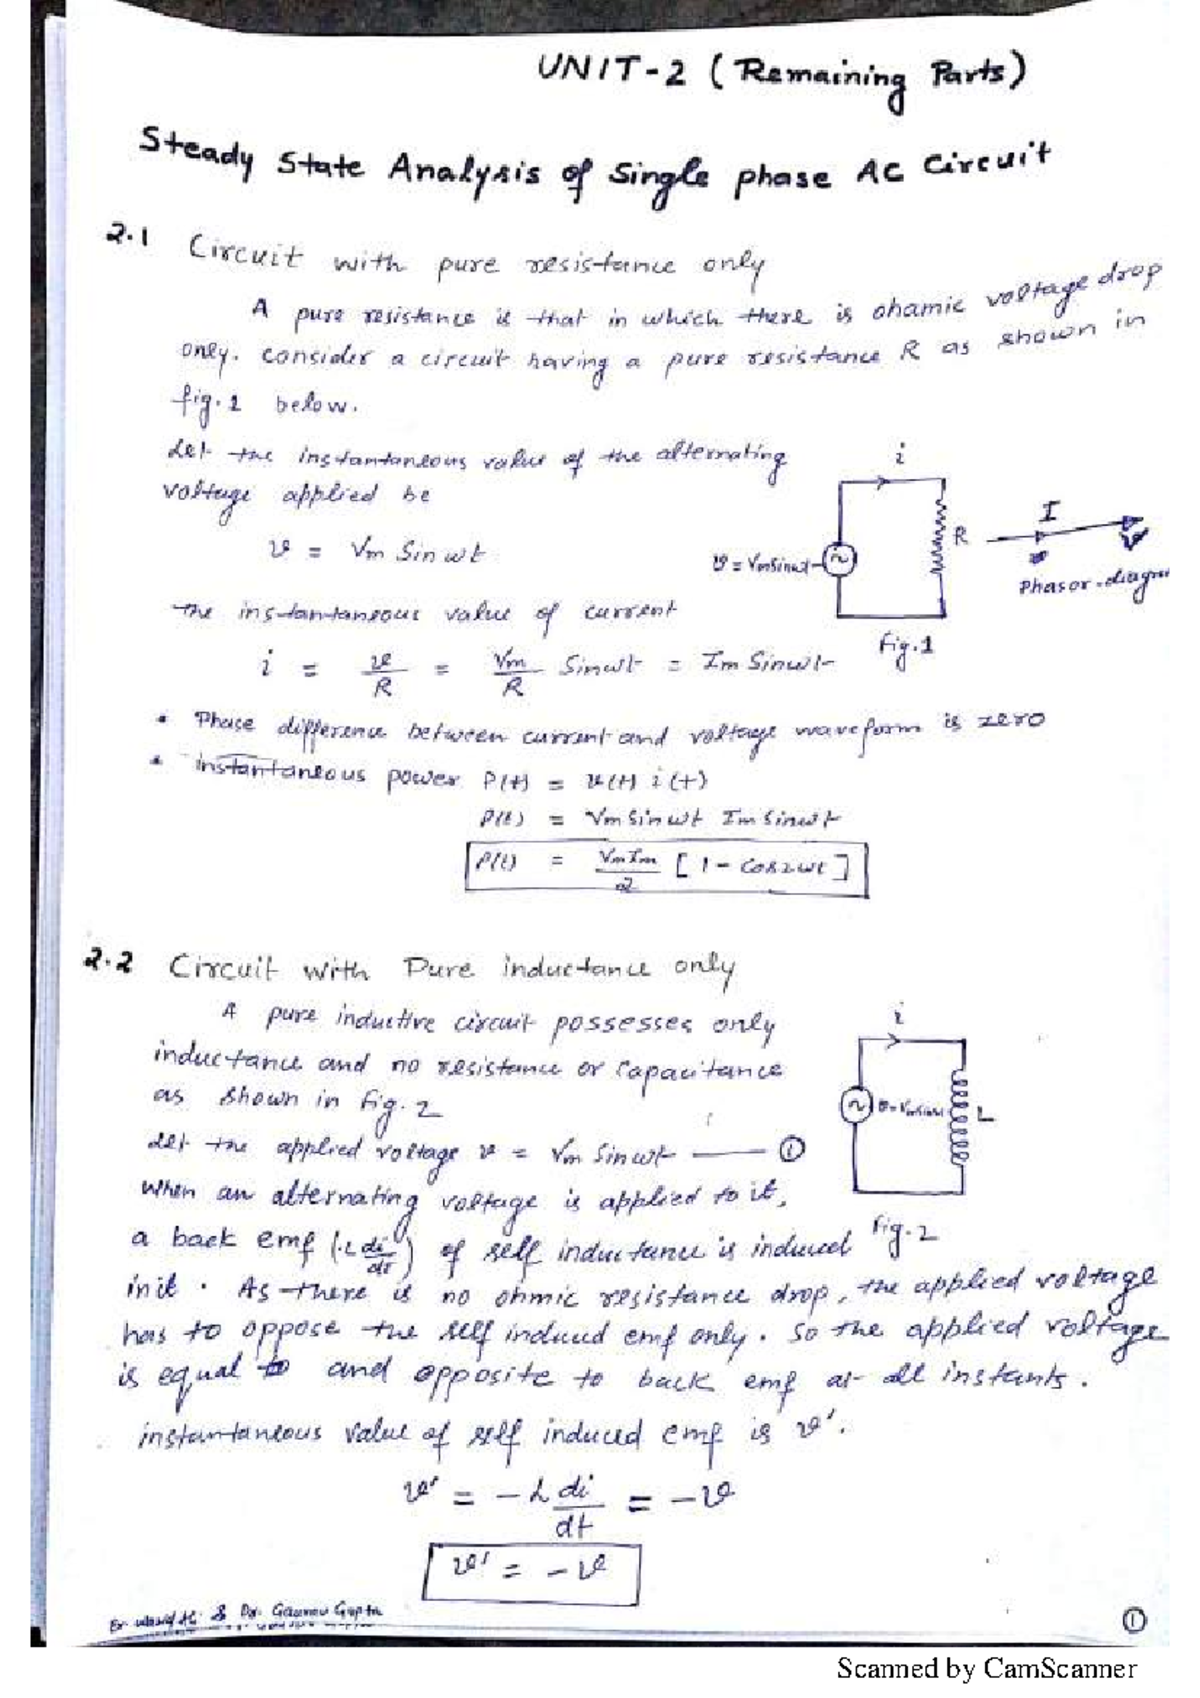 UNIT-2 (Remaining Parts)
Steady State Analysis of Single phase AC Circuit
2.1 Circuit with pure resistance only
A pure resistance is that in which there is ohamic voltage drop
only. Consider a circuit having a pure resistance R as shown in
fig.1 below.
Let the instantaneous value of the alternating
voltage applied be
v = Vm Sin wt
i
R
v = Vm Sinwt
I
V
Phasor-diagra
Fig.1
The instantaneous value of current
i = v/R = Vm/R Sinwt = Im Sinwt
• Phase difference between current and voltage waveform is zero
• instantaneous power P(t) = v(t) i(t)
P(t) = Vm Sinwt Im Sinwt
P(t) = VmIm/2 [1 - Cos2wt]
2.2 Circuit with Pure inductance only
A pure inductive circuit possesses only
inductance and no resistance or capacitance
as shown in fig.2
Let the applied voltage v = Vm Sinwt —— ①
When an alternating voltage is applied to it,
i
v=Vmsinwt
L
Fig.2
a back emf (-L di/dt) of self inductance is induced
in it. As there is no ohmic resistance drop, the applied voltage
has to oppose the self induced emf only. So the applied voltage
is equal to and opposite to back emf at all instants.
instantaneous value of self induced emf is v'.
v' = -L di/dt = -v
v' = -v
& Dr. Gaurav Gupta
①
Scanned by CamScanner